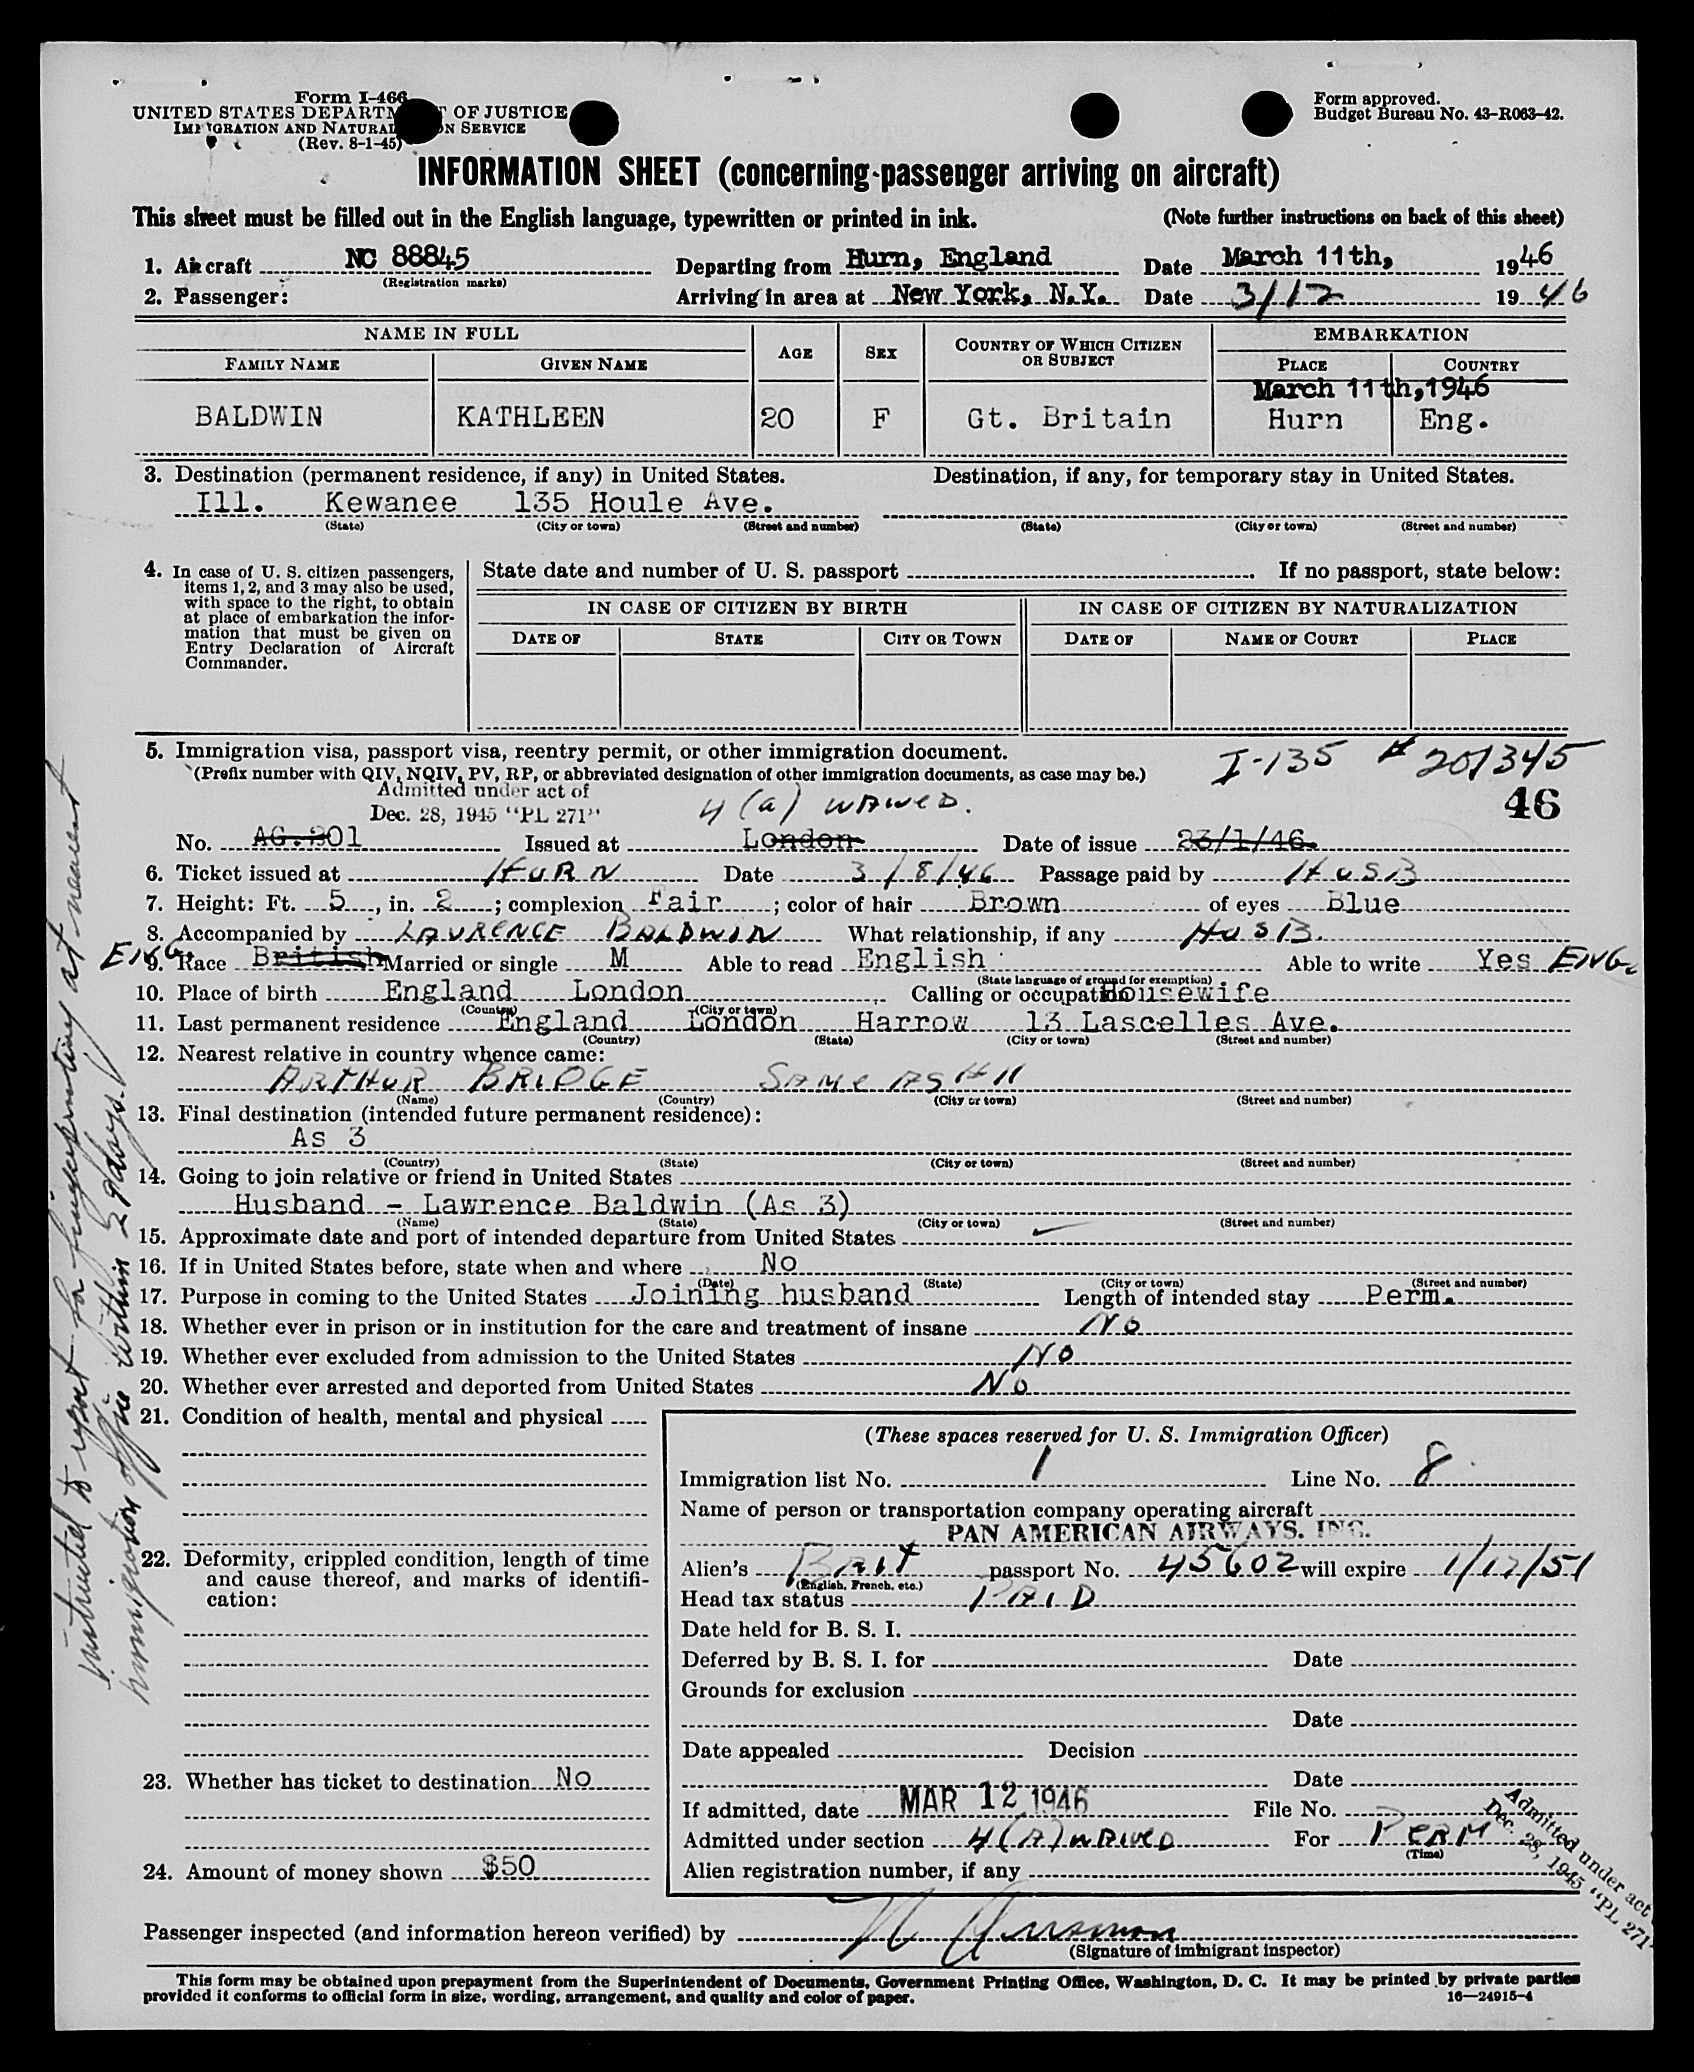 Form I-466
UNITED STATES DEPARTM OF JUSTICE
IMMIGRATION AND NATURAL N SERVICE
(Rev. 8-1-45)
Form approved.
Budget Bureau No. 43-R063-42.
INFORMATION SHEET (concerning passenger arriving on aircraft)
This sheet must be filled out in the English language, typewritten or printed in ink. (Note further instructions on back of this sheet)
1. Aircraft NC 88845 Departing from Hurn, England Date March 11th, 1946
(Registration marks)
2. Passenger: Arriving in area at New York, N.Y. Date 3/12 1946
NAME IN FULL AGE SEX COUNTRY OF WHICH CITIZEN OR SUBJECT EMBARKATION
FAMILY NAME GIVEN NAME PLACE COUNTRY
March 11th, 1946
BALDWIN KATHLEEN 20 F Gt. Britain Hurn Eng.
3. Destination (permanent residence, if any) in United States. Destination, if any, for temporary stay in United States.
Ill. Kewanee 135 Houle Ave.
(State) (City or town) (Street and number) (State) (City or town) (Street and number)
4. In case of U. S. citizen passengers,
items 1, 2, and 3 may also be used,
with space to the right, to obtain
at place of embarkation the infor-
mation that must be given on
Entry Declaration of Aircraft
Commander.
State date and number of U. S. passport . If no passport, state below:
IN CASE OF CITIZEN BY BIRTH IN CASE OF CITIZEN BY NATURALIZATION
DATE OF STATE CITY OR TOWN DATE OF NAME OF COURT PLACE
5. Immigration visa, passport visa, reentry permit, or other immigration document. I-135 # 201345
(Prefix number with QIV, NQIV, PV, RP, or abbreviated designation of other immigration documents, as case may be.)
Admitted under act of
Dec. 28, 1945 "PL 271" 4 (a) WAIVED. 46
No. AG.201 Issued at London Date of issue 23/1/46.
6. Ticket issued at HURN Date 3/8/46 Passage paid by HUSB
7. Height: Ft. 5, in. 2; complexion Fair; color of hair Brown of eyes Blue
8. Accompanied by LAURENCE BALDWIN What relationship, if any HUSB.
ENG. 9. Race British Married or single M Able to read English Able to write Yes ENG.
(State language or ground for exemption)
10. Place of birth England London Calling or occupation Housewife
(Country) (City or town)
11. Last permanent residence England London Harrow 13 Lascelles Ave.
(Country) (State) (City or town) (Street and number)
12. Nearest relative in country whence came:
ARTHUR BRIDGE SAME AS # 11
(Name) (Country) (City or town) (Street and number)
13. Final destination (intended future permanent residence):
As 3
(Country) (State) (City or town) (Street and number)
14. Going to join relative or friend in United States
Husband - Lawrence Baldwin (As 3)
(Name) (State) (City or town) (Street and number)
15. Approximate date and port of intended departure from United States
16. If in United States before, state when and where No
(Date) (State) (City or town) (Street and number)
17. Purpose in coming to the United States Joining husband Length of intended stay Perm.
18. Whether ever in prison or in institution for the care and treatment of insane No
19. Whether ever excluded from admission to the United States No
20. Whether ever arrested and deported from United States No
21. Condition of health, mental and physical
22. Deformity, crippled condition, length of time
and cause thereof, and marks of identifi-
cation:
23. Whether has ticket to destination No
24. Amount of money shown $50
(These spaces reserved for U. S. Immigration Officer)
Immigration list No. 1 Line No. 8
Name of person or transportation company operating aircraft
PAN AMERICAN AIRWAYS. INC.
Alien's Brit passport No. 45602 will expire 1/17/51
(English, French, etc.)
Head tax status PAID
Date held for B. S. I.
Deferred by B. S. I. for Date
Grounds for exclusion
Date
Date appealed Decision
Date
If admitted, date MAR 12 1946 File No.
Admitted under section 4(A) WAIVED For PERM
(Time)
Alien registration number, if any
Admitted under act
Dec. 28, 1945 "PL 271"
Passenger inspected (and information hereon verified) by
(Signature of immigrant inspector)
This form may be obtained upon prepayment from the Superintendent of Documents, Government Printing Office, Washington, D. C. It may be printed by private parties
provided it conforms to official form in size, wording, arrangement, and quality and color of paper. 16—24915-4
instructed to report for fingerprinting at nearest
immigration office within 29 days.